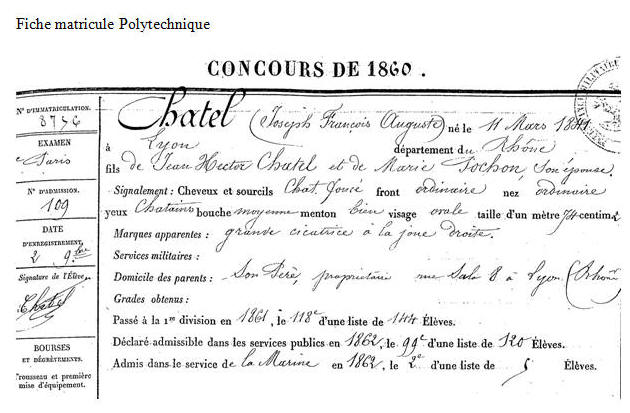 Fiche matricule Polytechnique
CONCOURS DE 1860.
N° D'IMMATRICULATION.
8756
EXAMEN
Paris
N° D'ADMISSION.
109
DATE
D'ENREGISTREMENT.
2 9bre
Signature de l'Élève
Chatel
BOURSES
ET DÉGRÈVEMENTS.
Trousseau et première
mise d'équipement.
Chatel (Joseph François Auguste) né le 11 Mars 1841
à Lyon département du Rhône
fils de Jean Hector Chatel et de Marie Pochon, son épouse.
Signalement: Cheveux et sourcils Chat. foncé front ordinaire nez ordinaire
yeux Chatains bouche moyenne menton bien visage ovale taille d'un mètre 74 centim
Marques apparentes: grande cicatrice à la joue droite.
Services militaires:
Domicile des parents: Son Père, propriétaire rue Sala 8 à Lyon (Rhône
Grades obtenus:
Passé à la 1re division en 1861, le 118e d'une liste de 144 Élèves.
Déclaré admissible dans les services publics en 1862, le 99e d'une liste de 120 Élèves.
Admis dans le service de la Marine en 1862, le 2e d'une liste de 5 Élèves.